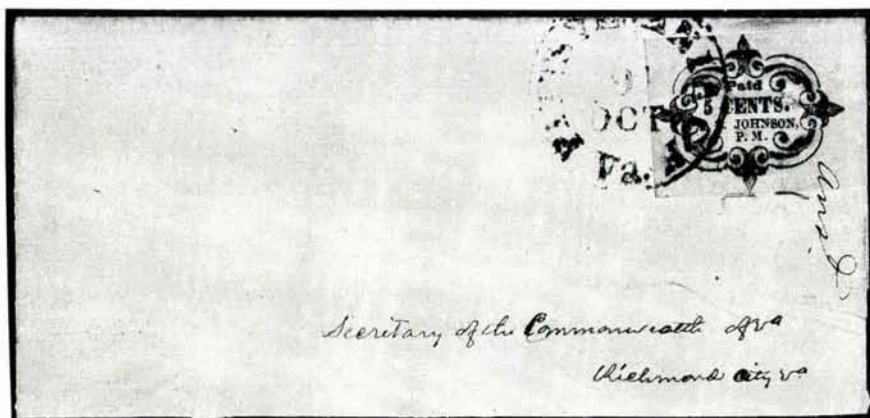 OCT
Va.
Paid
5 CENTS.
JOHNSON,
P. M.
Ansd
Secretary of the Commonwealth of Va
Richmond City Va